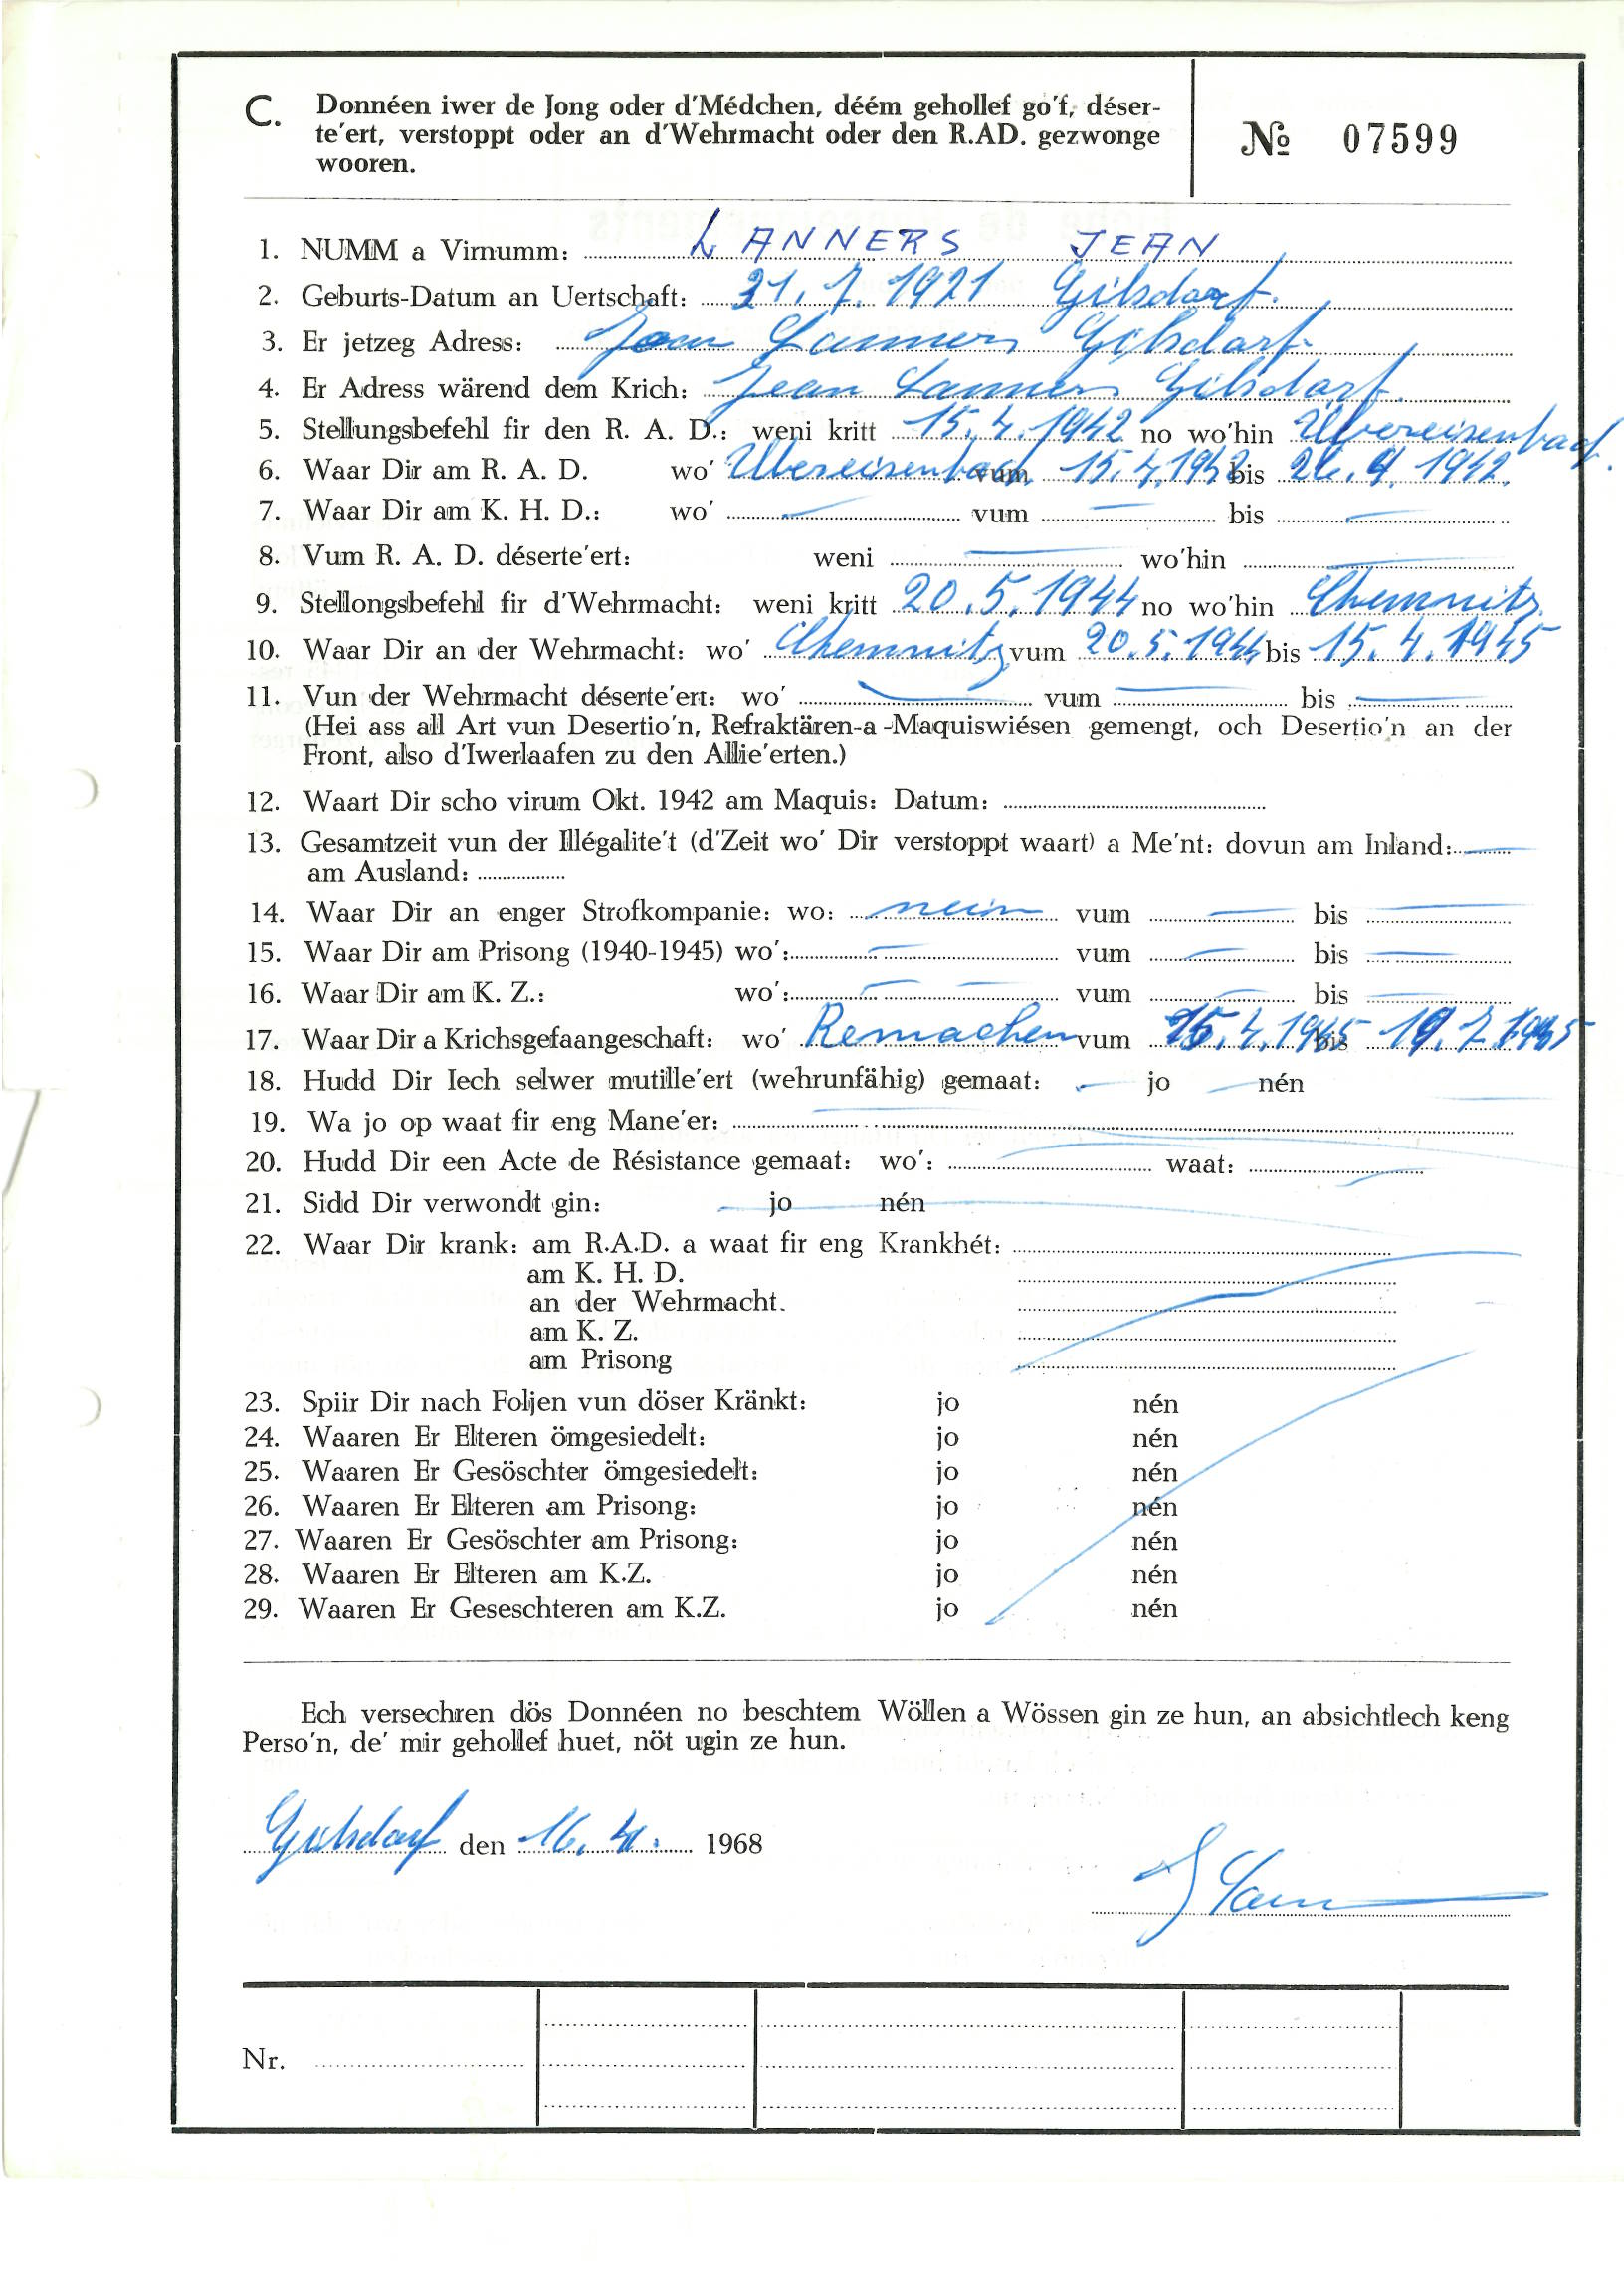 C. Donnéen iwer de Jong oder d'Médchen, déém gehollef go'f, déser-
te'ert, verstoppt oder an d'Wehrmacht oder den R.AD. gezwonge
wooren.
№ 07599
1. NUMM a Virnumm: LANNERS JEAN
2. Geburts-Datum an Uertschaft: 21. 7. 1921 Gilsdorf.
3. Er jetzeg Adress: Jean Lanners Gilsdorf
4. Er Adress wärend dem Krich: Jean Lanners Gilsdorf.
5. Stellungsbefehl fir den R. A. D.: weni kritt 15. 4. 1942 no wo'hin Übereisenbach
6. Waar Dir am R. A. D. wo' Übereisenbach vum 15. 4. 1942 bis 26. 9. 1942.
7. Waar Dir am K. H. D.: wo' — vum — bis —
8. Vum R. A. D. déserte'ert: weni — wo'hin —
9. Stellongsbefehl fir d'Wehrmacht: weni kritt 20. 5. 1944 no wo'hin Chemnitz
10. Waar Dir an der Wehrmacht: wo' Chemnitz vum 20. 5. 1944 bis 15. 4. 1945
11. Vun der Wehrmacht déserte'ert: wo' — vum — bis —
(Hei ass all Art vun Desertio'n, Refraktären-a-Maquiswiésen gemengt, och Desertio'n an der
Front, also d'Iwerlaafen zu den Allie'erten.)
12. Waart Dir scho virum Okt. 1942 am Maquis: Datum:
13. Gesamtzeit vun der Illégalite't (d'Zeit wo' Dir verstoppt waart) a Me'nt: dovun am Inland: —
am Ausland:
14. Waar Dir an enger Strofkompanie: wo: nein vum — bis —
15. Waar Dir am Prisong (1940-1945) wo': — vum — bis —
16. Waar Dir am K. Z.: wo': — — vum — bis —
17. Waar Dir a Krichsgefaangeschaft: wo' Remachen vum 15. 4. 1945 bis 19. 7. 1945
18. Hudd Dir Iech selwer mutille'ert (wehrunfähig) gemaat: — jo — nén
19. Wa jo op waat fir eng Mane'er: —
20. Hudd Dir een Acte de Résistance gemaat: wo': — waat: —
21. Sidd Dir verwondt gin: jo nén
22. Waar Dir krank: am R.A.D. a waat fir eng Krankhét:
am K. H. D.
an der Wehrmacht.
am K. Z.
am Prisong
23. Spiir Dir nach Foljen vun döser Kränkt: jo nén
24. Waaren Er Elteren ömgesiedelt: jo nén
25. Waaren Er Gesöschter ömgesiedelt: jo nén
26. Waaren Er Elteren am Prisong: jo nén
27. Waaren Er Gesöschter am Prisong: jo nén
28. Waaren Er Elteren am K.Z. jo nén
29. Waaren Er Geseschteren am K.Z. jo nén
Ech versechren dös Donnéen no beschtem Wöllen a Wössen gin ze hun, an absichtlech keng
Perso'n, de' mir gehollef huet, nöt ugin ze hun.
Gilsdorf den 16. 4. 1968
J Lann
Nr.